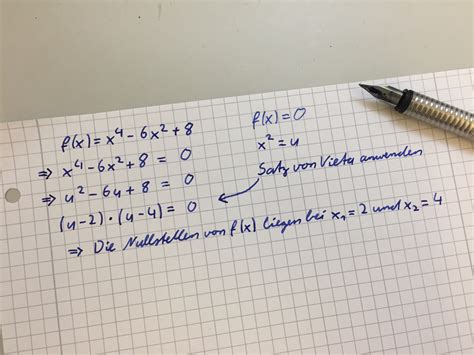 f(x) = x⁴ - 6x² + 8
f(x) = 0
⇒ x⁴ - 6x² + 8 = 0
x² = u
⇒ u² - 6u + 8 = 0
Satz von Vieta anwenden
(u-2) · (u-4) = 0
⇒ Die Nullstellen von f(x) liegen bei x₁ = 2 und x₂ = 4